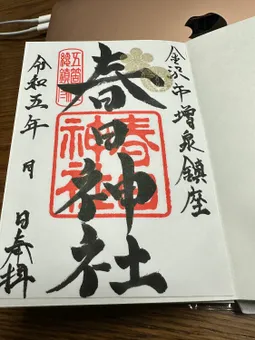 金沢市増泉鎮座
春日神社
春日
神社
令和五年 月 日奉拝